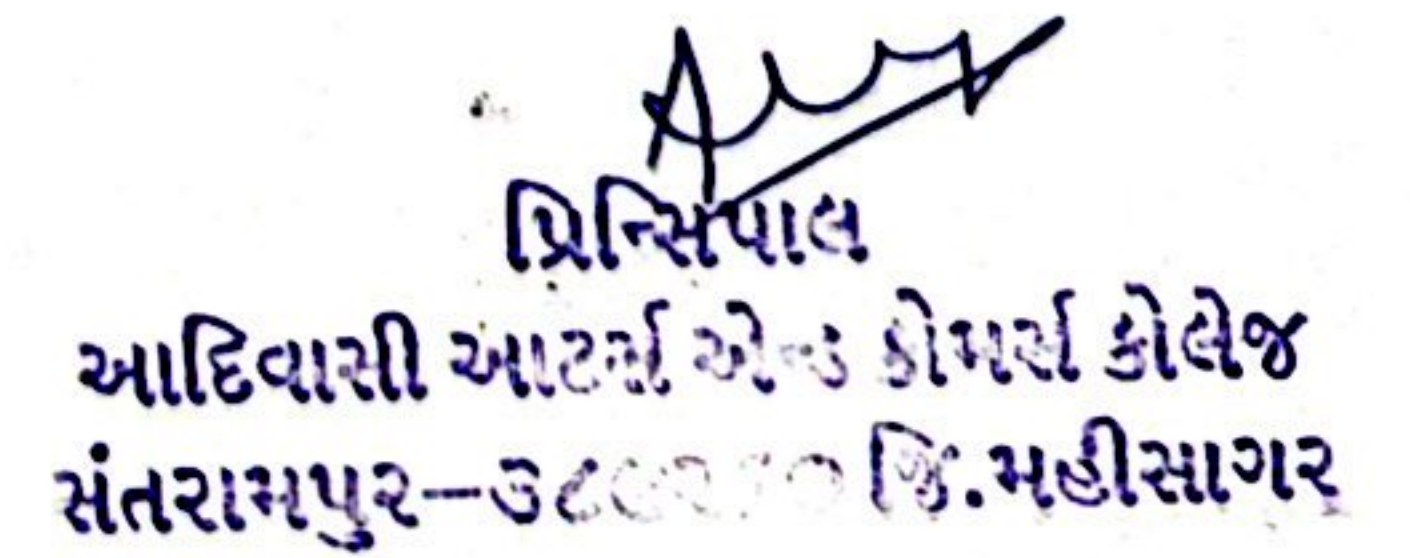 પ્રિન્સિપાલ
આદિવાસી આટર્સ એન્ડ કોમર્સ કોલેજ
સંતરામપુર– જિ.મહીસાગર